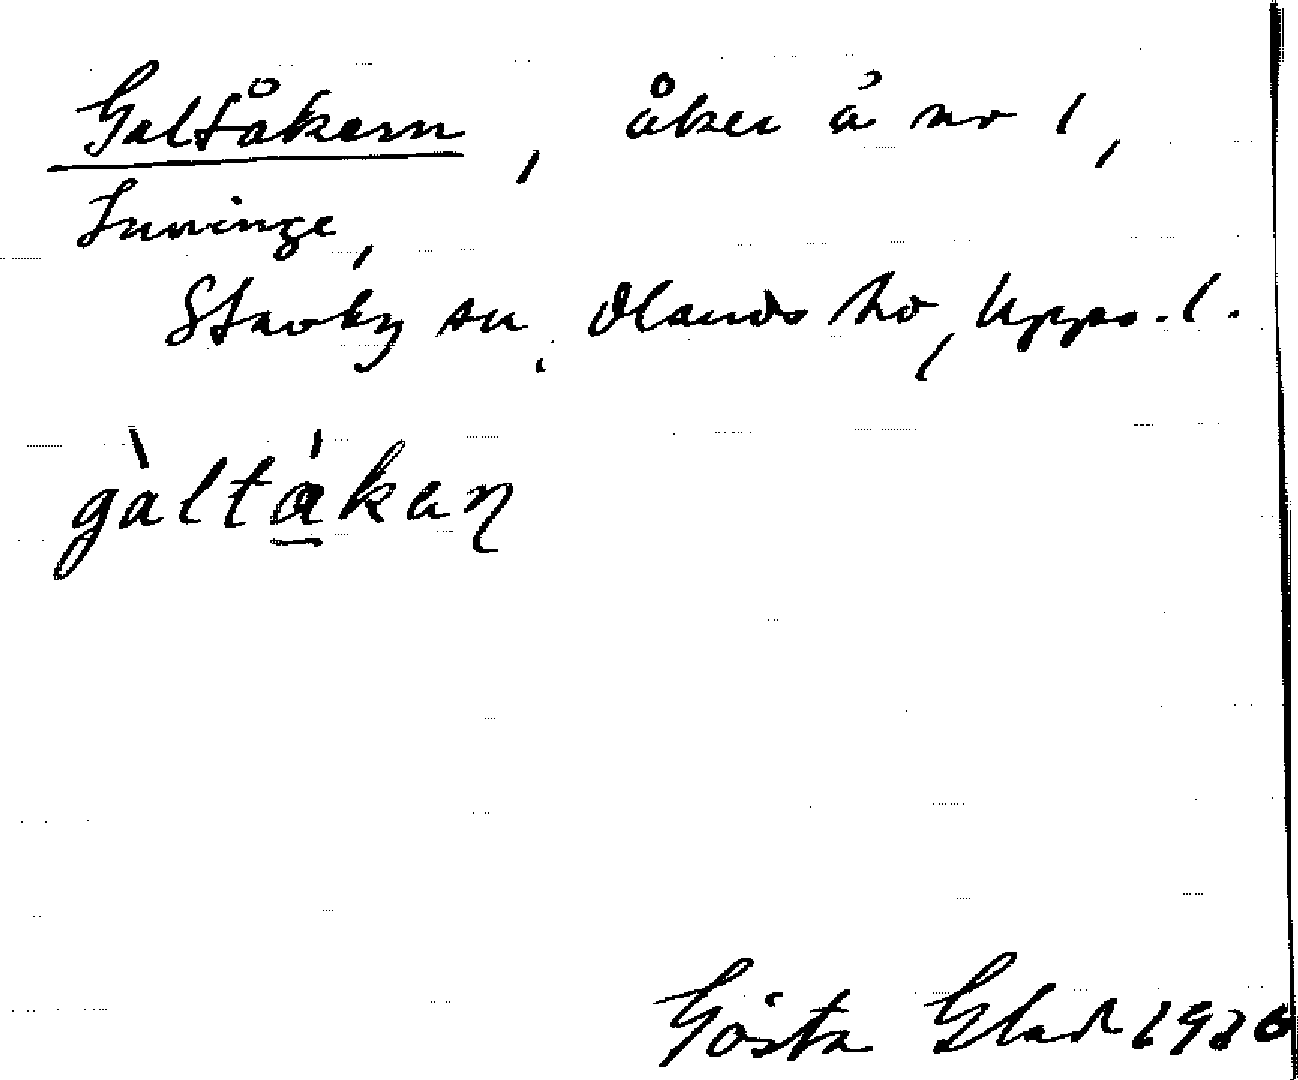 Galtåkern, åker å nr 1,
Inninge,
Stavby sn, Olands hd, Upps. l.
gàltákaɳ
Gösta Glad 1930